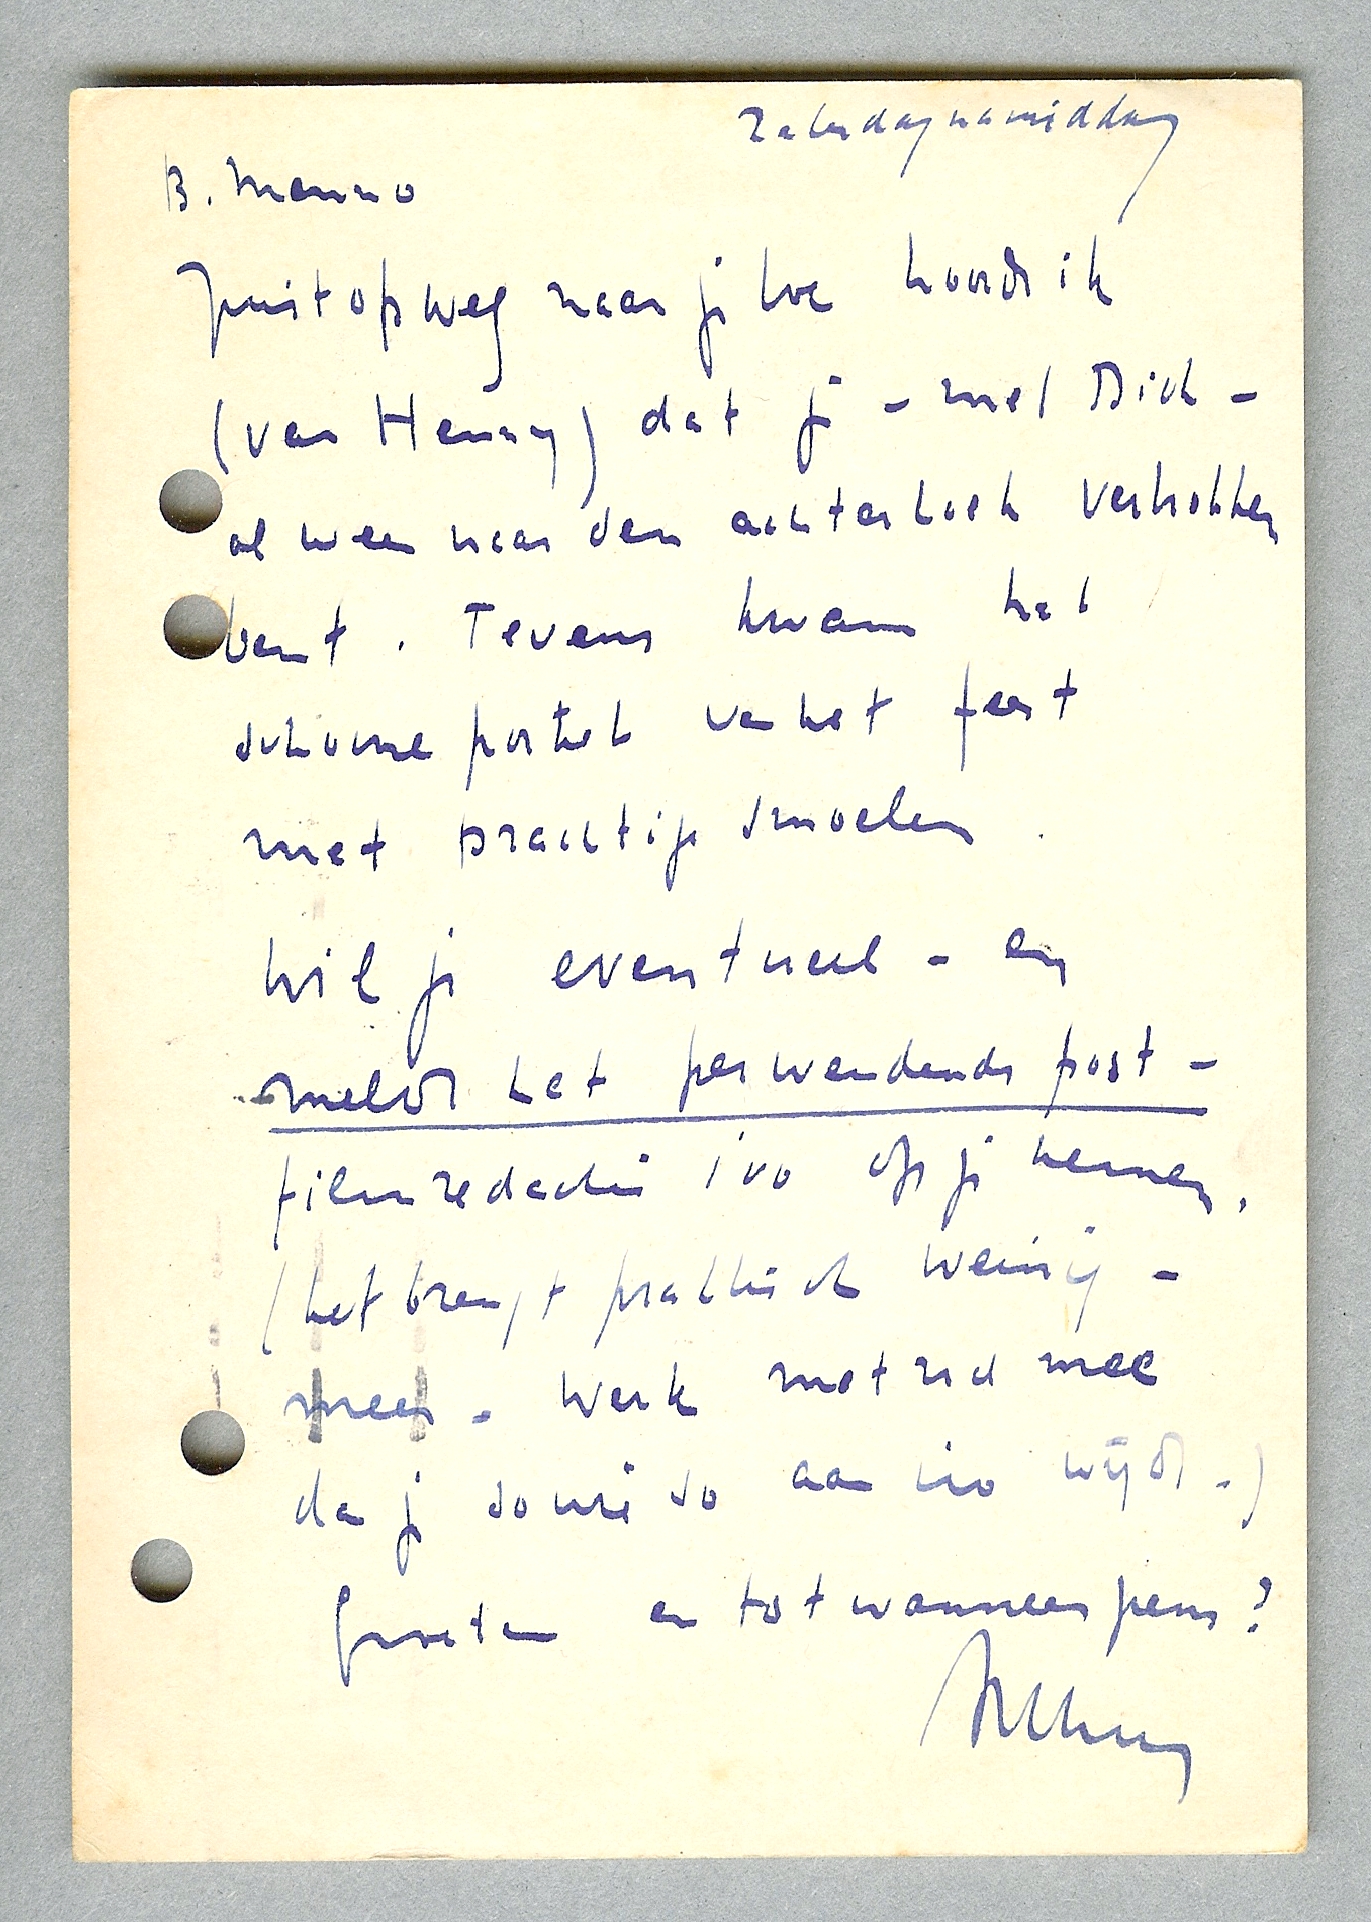 Zaterdagnamiddag
B. Menno
Juist op weg naar je toe hoorde ik
(van Henny) dat je - met Dick -
al weer naar den achterhoek vertrokken
bent. Tevens kwam het
schoone portret van het feest
met prachtige smoelen.
Wil je eventueel - en
meldt het per wendende post -
filmredactie i10 op je nemen.
(het brengt praktisch weinig -
meer - werk met zich mee
daar je sowieso aan i10 wijdt -)
Groeten en tot wanneer pens?